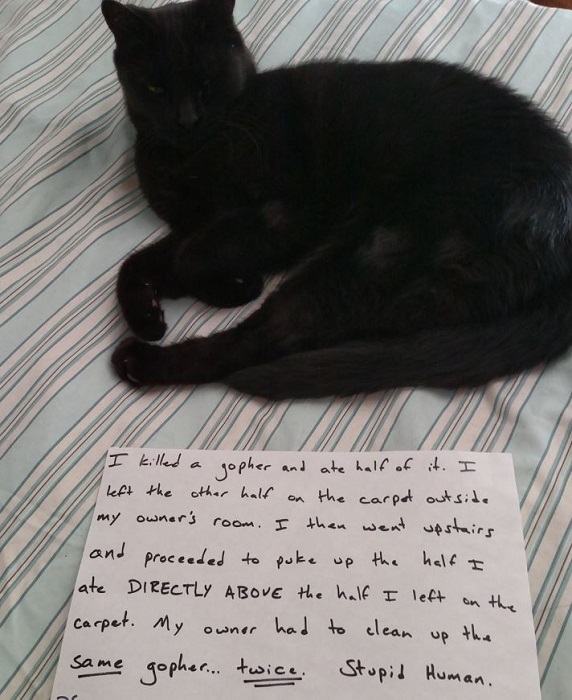 I killed a gopher and ate half of it. I
left the other half on the carpet outside
my owner's room. I then went upstairs
and proceeded to puke up the half I
ate DIRECTLY ABOVE the half I left on the
carpet. My owner had to clean up the
same gopher... twice. Stupid Human.